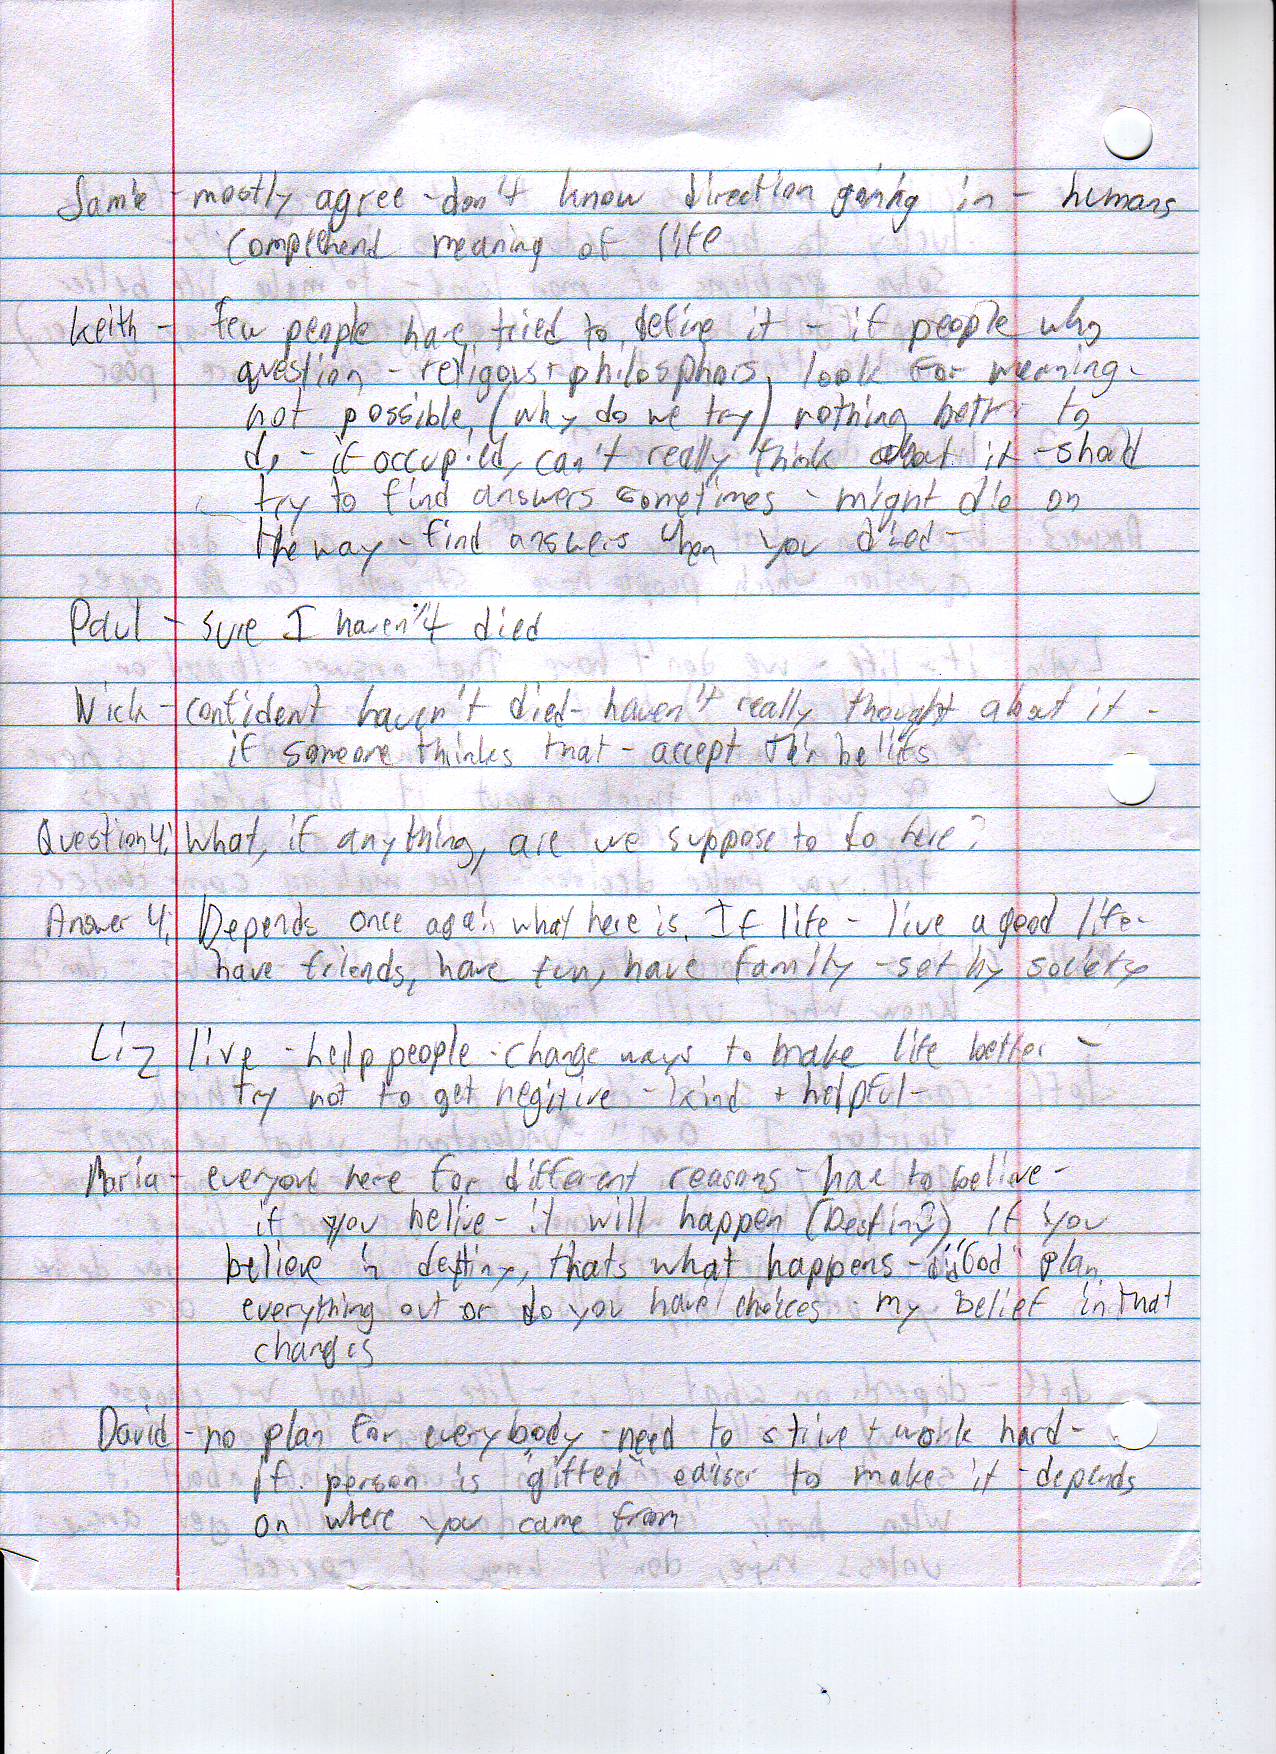 Jamie - mostly agree - don't know direction going in - humans
comprehend meaning of life
Keith - few people have tried to define it - if people who
question - religous + philosphors, look for meaning -
not possible, (why do we try) nothing better to
do - if occupied, can't really think about it - should
try to find answers sometimes - might die on
the way - find answers when you died -
Paul - sure I haven't died
Nick - confident haven't died - haven't really thought about it -
if someone thinks that - accept their belifs
Question 4: What, if anything, are we suppose to do here?
Answer 4: Depends once again what here is. If life - live a good life -
have friends, have fun, have family - set by society
Liz live - help people - change ways to make life better -
try not to get negitive - kind + helpful -
Maria - everyone here for different reasons - have to belive -
if you belive - it will happen (Destiny?), If you
believe in destiny, thats what happens - did God plan
everything out or do you have choices - my belief in that
changes
David - no plan for everybody - need to strive + work hard -
if person is "gifted" eaiser to make it - depends
on where you came from